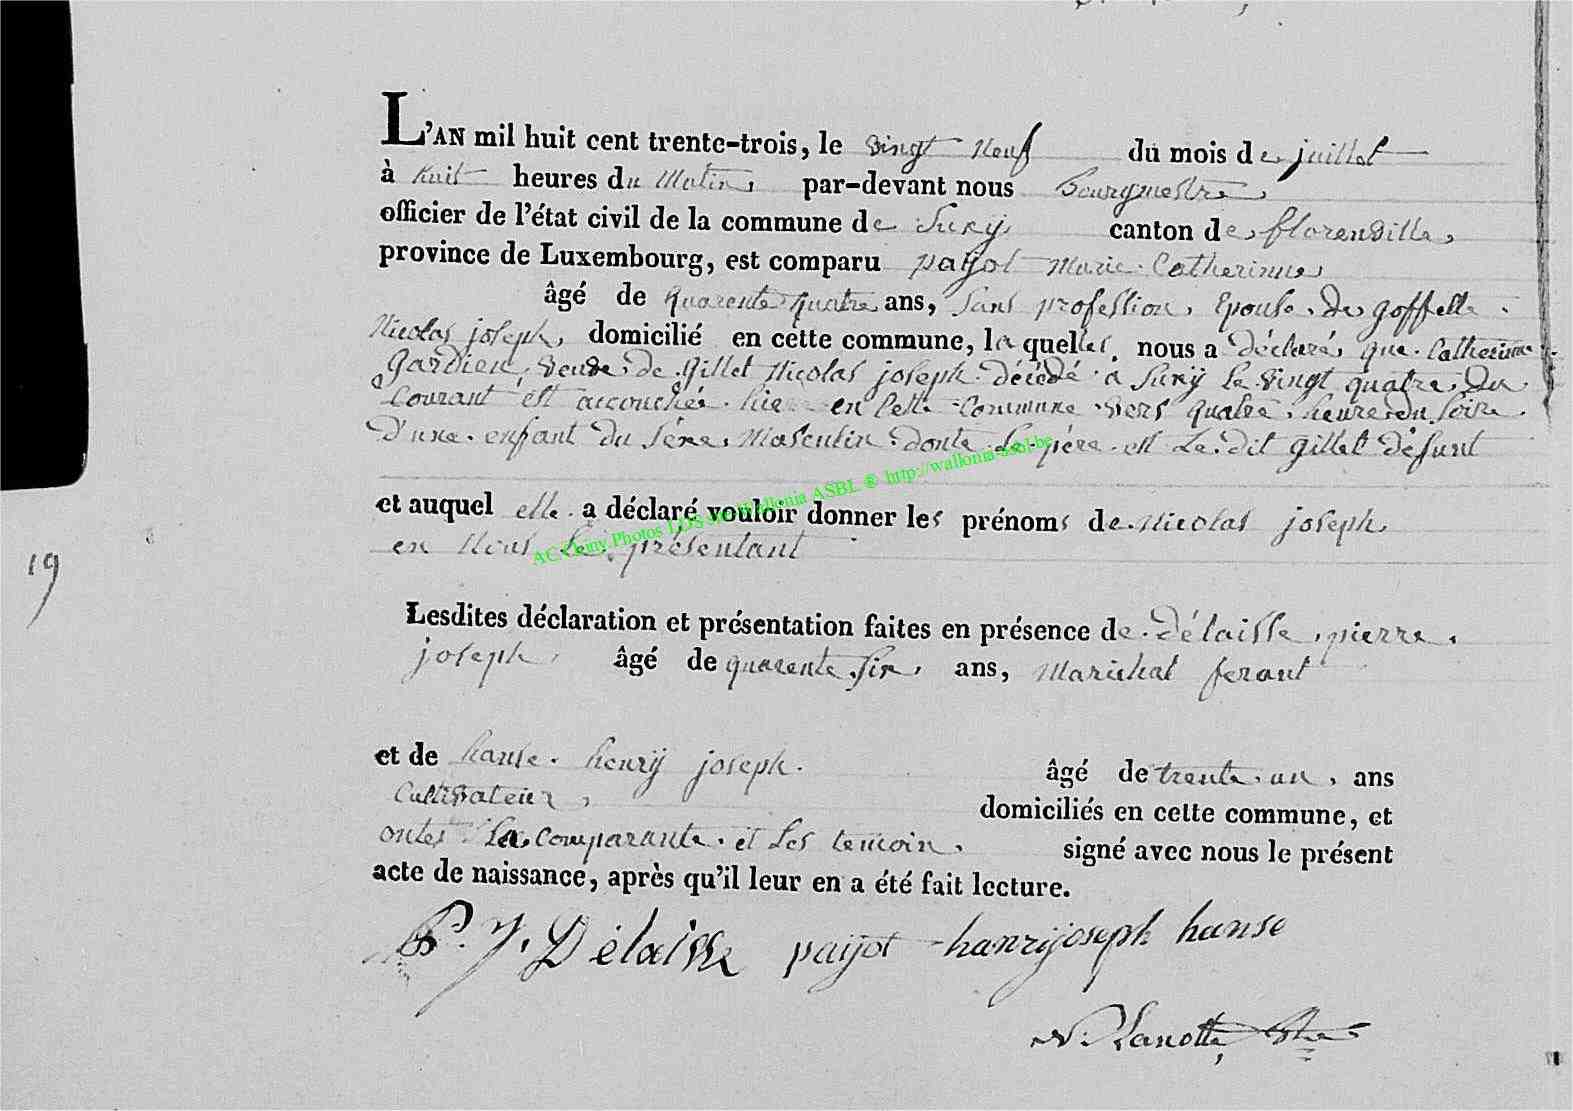 L'AN mil huit cent trente-trois, le vingt neuf du mois de juillet
à huit heures du Matin, par-devant nous Bourgmestre,
officier de l'état civil de la commune de Suxÿ canton de florenville,
province de Luxembourg, est comparu païjot Marie Catherinne,
âgé de quarente quatre ans, sans profession, Epouse de goffette
Nicolas joseph, domicilié en cette commune, la quelle, nous a déclaré, que Catherinne
gardien, veuve de gillet Nicolas joseph décédé a Suxÿ le vingt quatre du
Courant est accouchée hier en Cette Commune vers quatre heure du soire
d'une enfant du séxe Masculin donte le père est le dit gillet défunt
et auquel elle a déclaré vouloir donner les prénoms de Nicolas joseph,
en Nous le présentant
19
Lesdites déclaration et présentation faites en présence de délaisse pierre
joseph, âgé de quarente six, ans, Maréchal ferant
et de hanse henrÿ joseph. âgé de trente un, ans
Cultivateur, domiciliés en cette commune, et
ontes La comparante et les temoin, signé avec nous le présent
acte de naissance, après qu'il leur en a été fait lecture.
P. J. Délaisse païjot hanrÿ joseph hanse
N. Lanotte
AC Chiny Photos LDS sur Wallonia ASBL ® http://wallonia-asbl.be